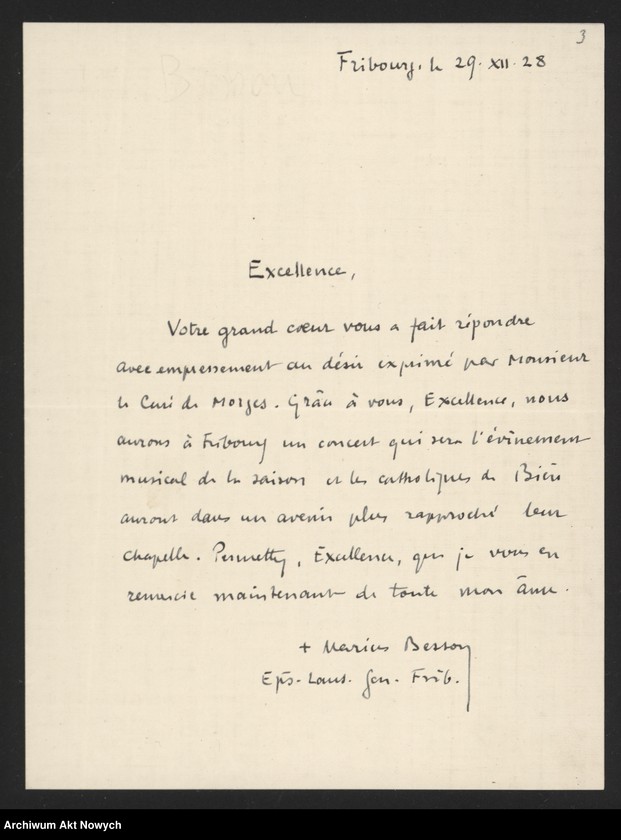 3
Fribourg, le 29. XII. 28
Besson
Excellence,
Votre grand cœur vous a fait répondre
avec empressement au désir exprimé par Monsieur
le Curé de Morges. Grâce à vous, Excellence, nous
aurons à Fribourg un concert qui sera l'évènement
musical de la saison et les catholiques de Bière
auront dans un avenir plus rapproché leur
chapelle. Permettez, Excellence, que je vous en
remercie maintenant de toute mon âme.
+ Marius Besson
Eps. Laus. Gen. Frib.
Archiwum Akt Nowych